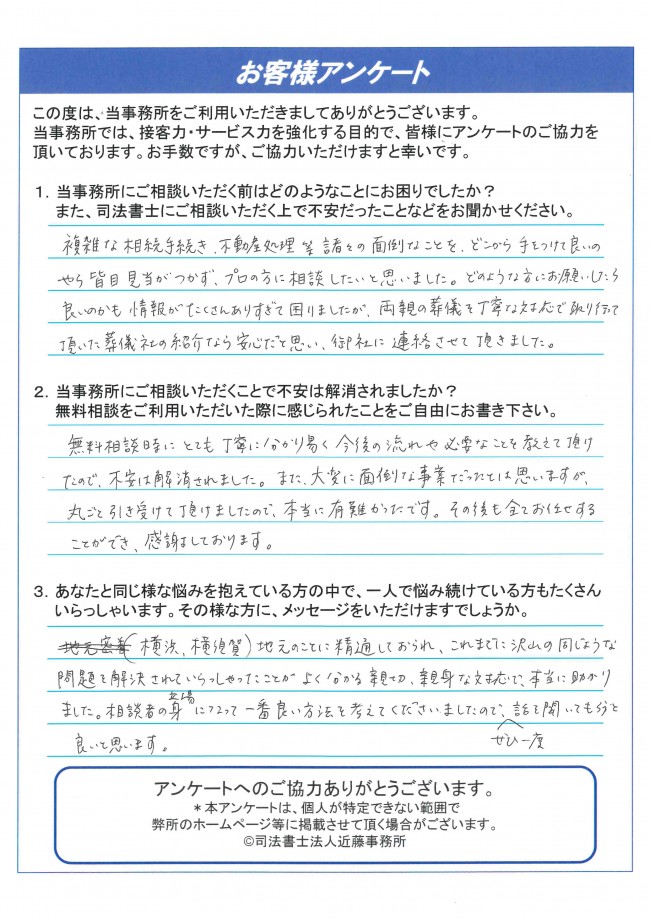 お客様アンケート
この度は、当事務所をご利用いただきましてありがとうございます。
当事務所では、接客力・サービス力を強化する目的で、皆様にアンケートのご協力を
頂いております。お手数ですが、ご協力いただけますと幸いです。
1．当事務所にご相談いただく前はどのようなことにお困りでしたか？
また、司法書士にご相談いただく上で不安だったことなどをお聞かせください。
複雑な相続手続き、不動産処理等諸々の面倒なことを、どこから手をつけて良いの
やら皆目見当がつかず、プロの方に相談したいと思いました。どのような方にお願いしたら
良いのかも情報がたくさんありすぎて困りましたが、両親の葬儀を丁寧な対応で取り行って
頂いた葬儀社の紹介なら安心だと思い、御社に連絡させて頂きました。
2．当事務所にご相談いただくことで不安は解消されましたか？
無料相談をご利用いただいた際に感じられたことをご自由にお書き下さい。
無料相談時にとても丁寧に分かり易く今後の流れや必要なことを教えて頂け
たので、不安は解消されました。また、大変に面倒な事業だったとは思いますが、
丸ごと引き受けて頂けましたので、本当に有難かったです。その後も全てお任せする
ことができ、感謝しております。
3．あなたと同じ様な悩みを抱えている方の中で、一人で悩み続けている方もたくさん
いらっしゃいます。その様な方に、メッセージをいただけますでしょうか。
地元密着(横浜、横須賀)地元のことに精通しておられ、これまでに沢山の同じような
問題を解決されていらっしゃったことがよく分かる親切、親身な対応で、本当に助かり
ました。相談者の立場に立って一番良い方法を考えてくださいましたので、ぜひ一度話を聞いてもらうと
良いと思います。
アンケートへのご協力ありがとうございます。
＊本アンケートは、個人が特定できない範囲で
弊所のホームページ等に掲載させて頂く場合がございます。
©司法書士法人近藤事務所